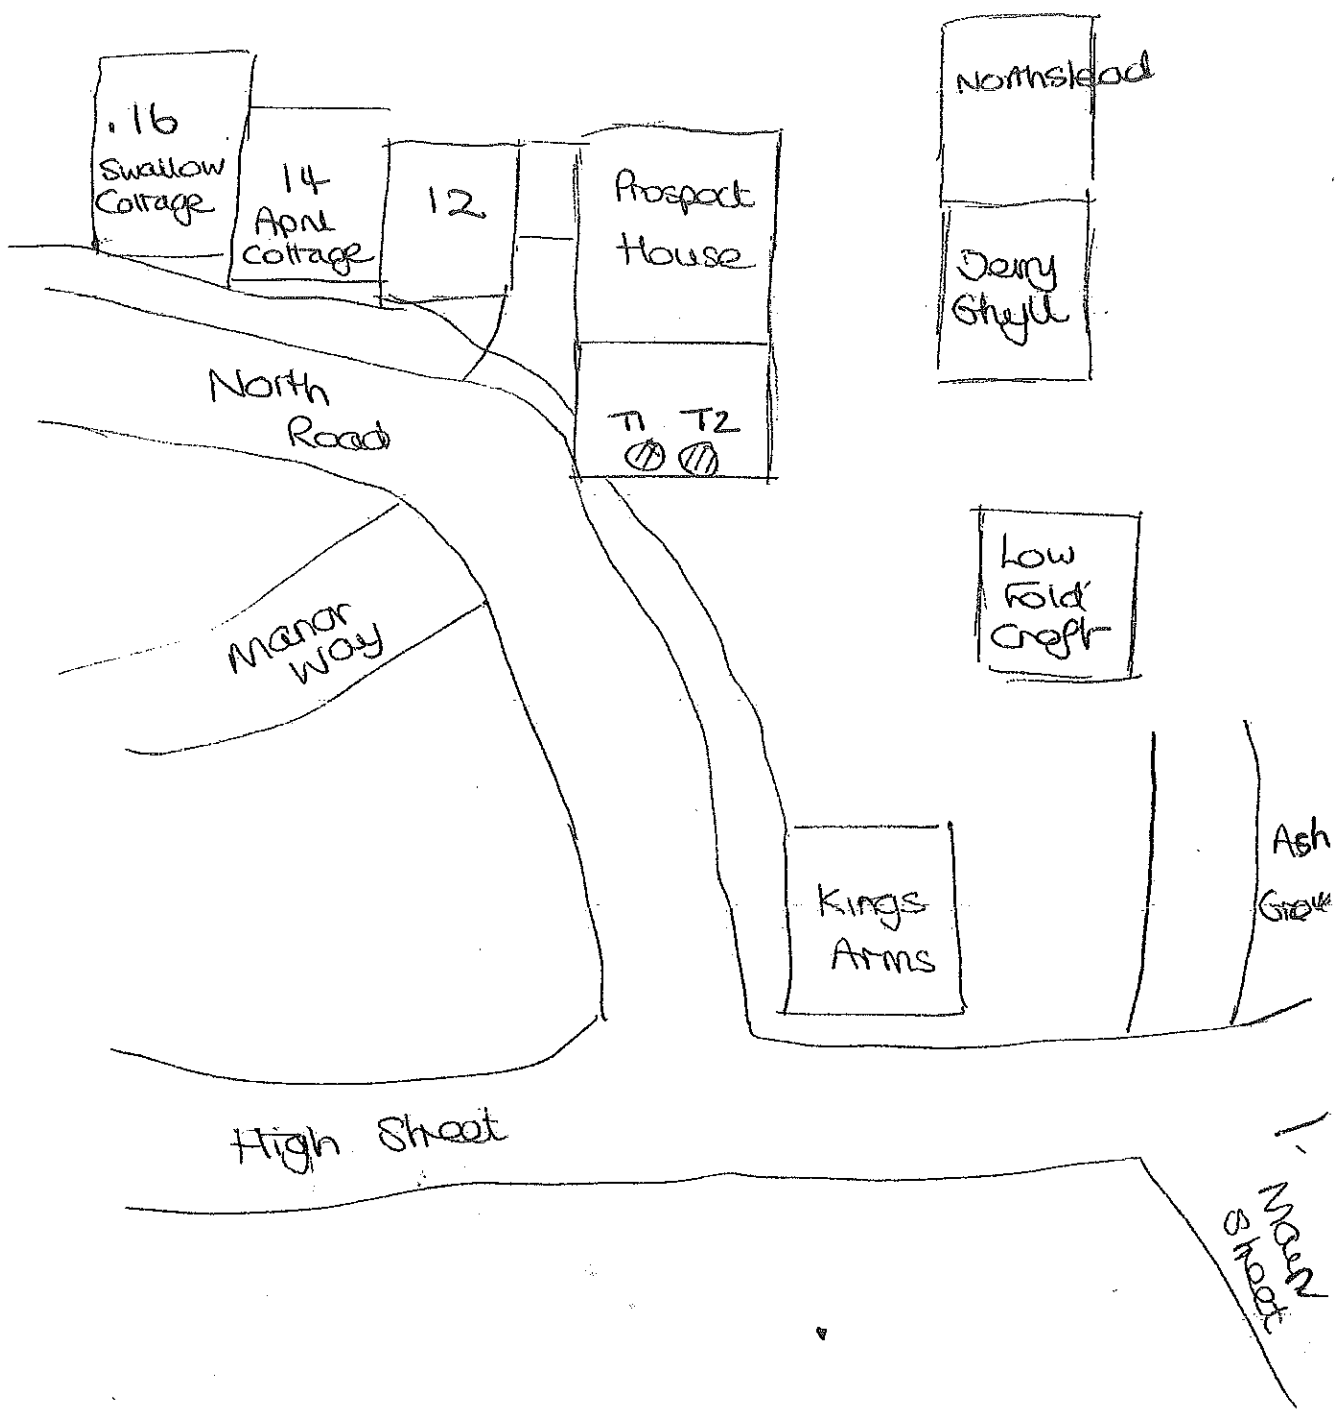 .16
Swallow
Cottage
14
April
Cottage
12
Prospect
House
Northstead
Derry
Ghyll
T1 T2
North
Road
Low
Fold
Croft
Manor
Way
Kings
Arms
Ash
Grove
High Street
Main
Street